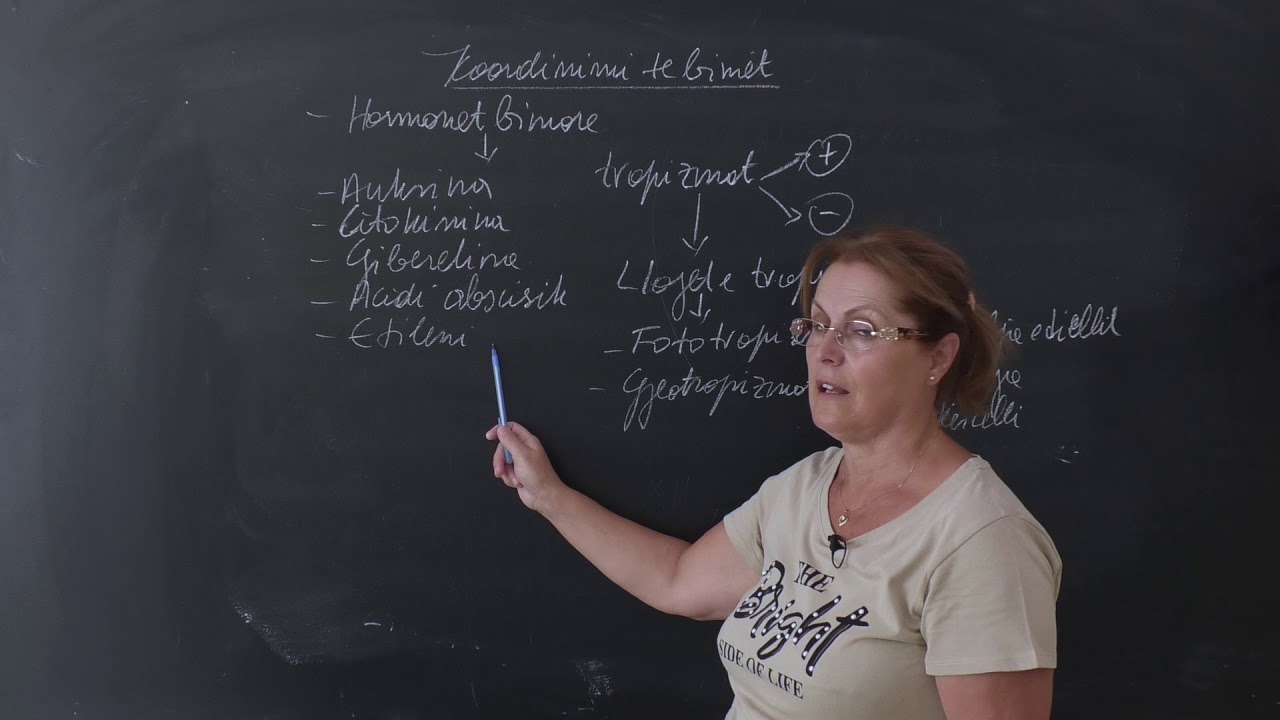 Koordinimi te bimët
- Hormonet bimore
- Auksina
- Citokinina
- Giberelina
- Acidi absisik
- Etileni
tropizmat
+
-
Llojet e
- Fototropiz
- Gjeotropizmo
THE
Bright
SIDE OF LIFE